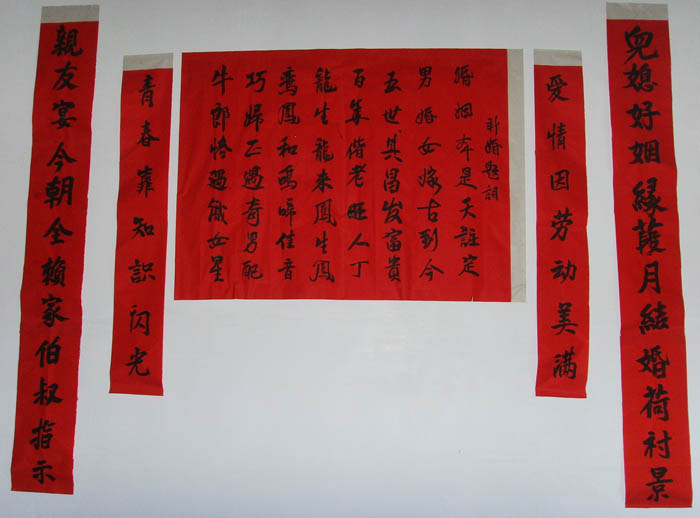 兒媳好姻緣葭月結婚荷衬景
愛情因劳动美满
新婚题詞
婚姻本是天註定
男婚女嫁古到今
五世其昌发富貴
百年偕老旺人丁
龍生龍来鳳生鳳
鸾鳳和鸣啼佳音
巧婦正遇奇男配
牛郎恰遇織女星
青春靠知識闪光
親友宴今朝全賴家伯叔指示